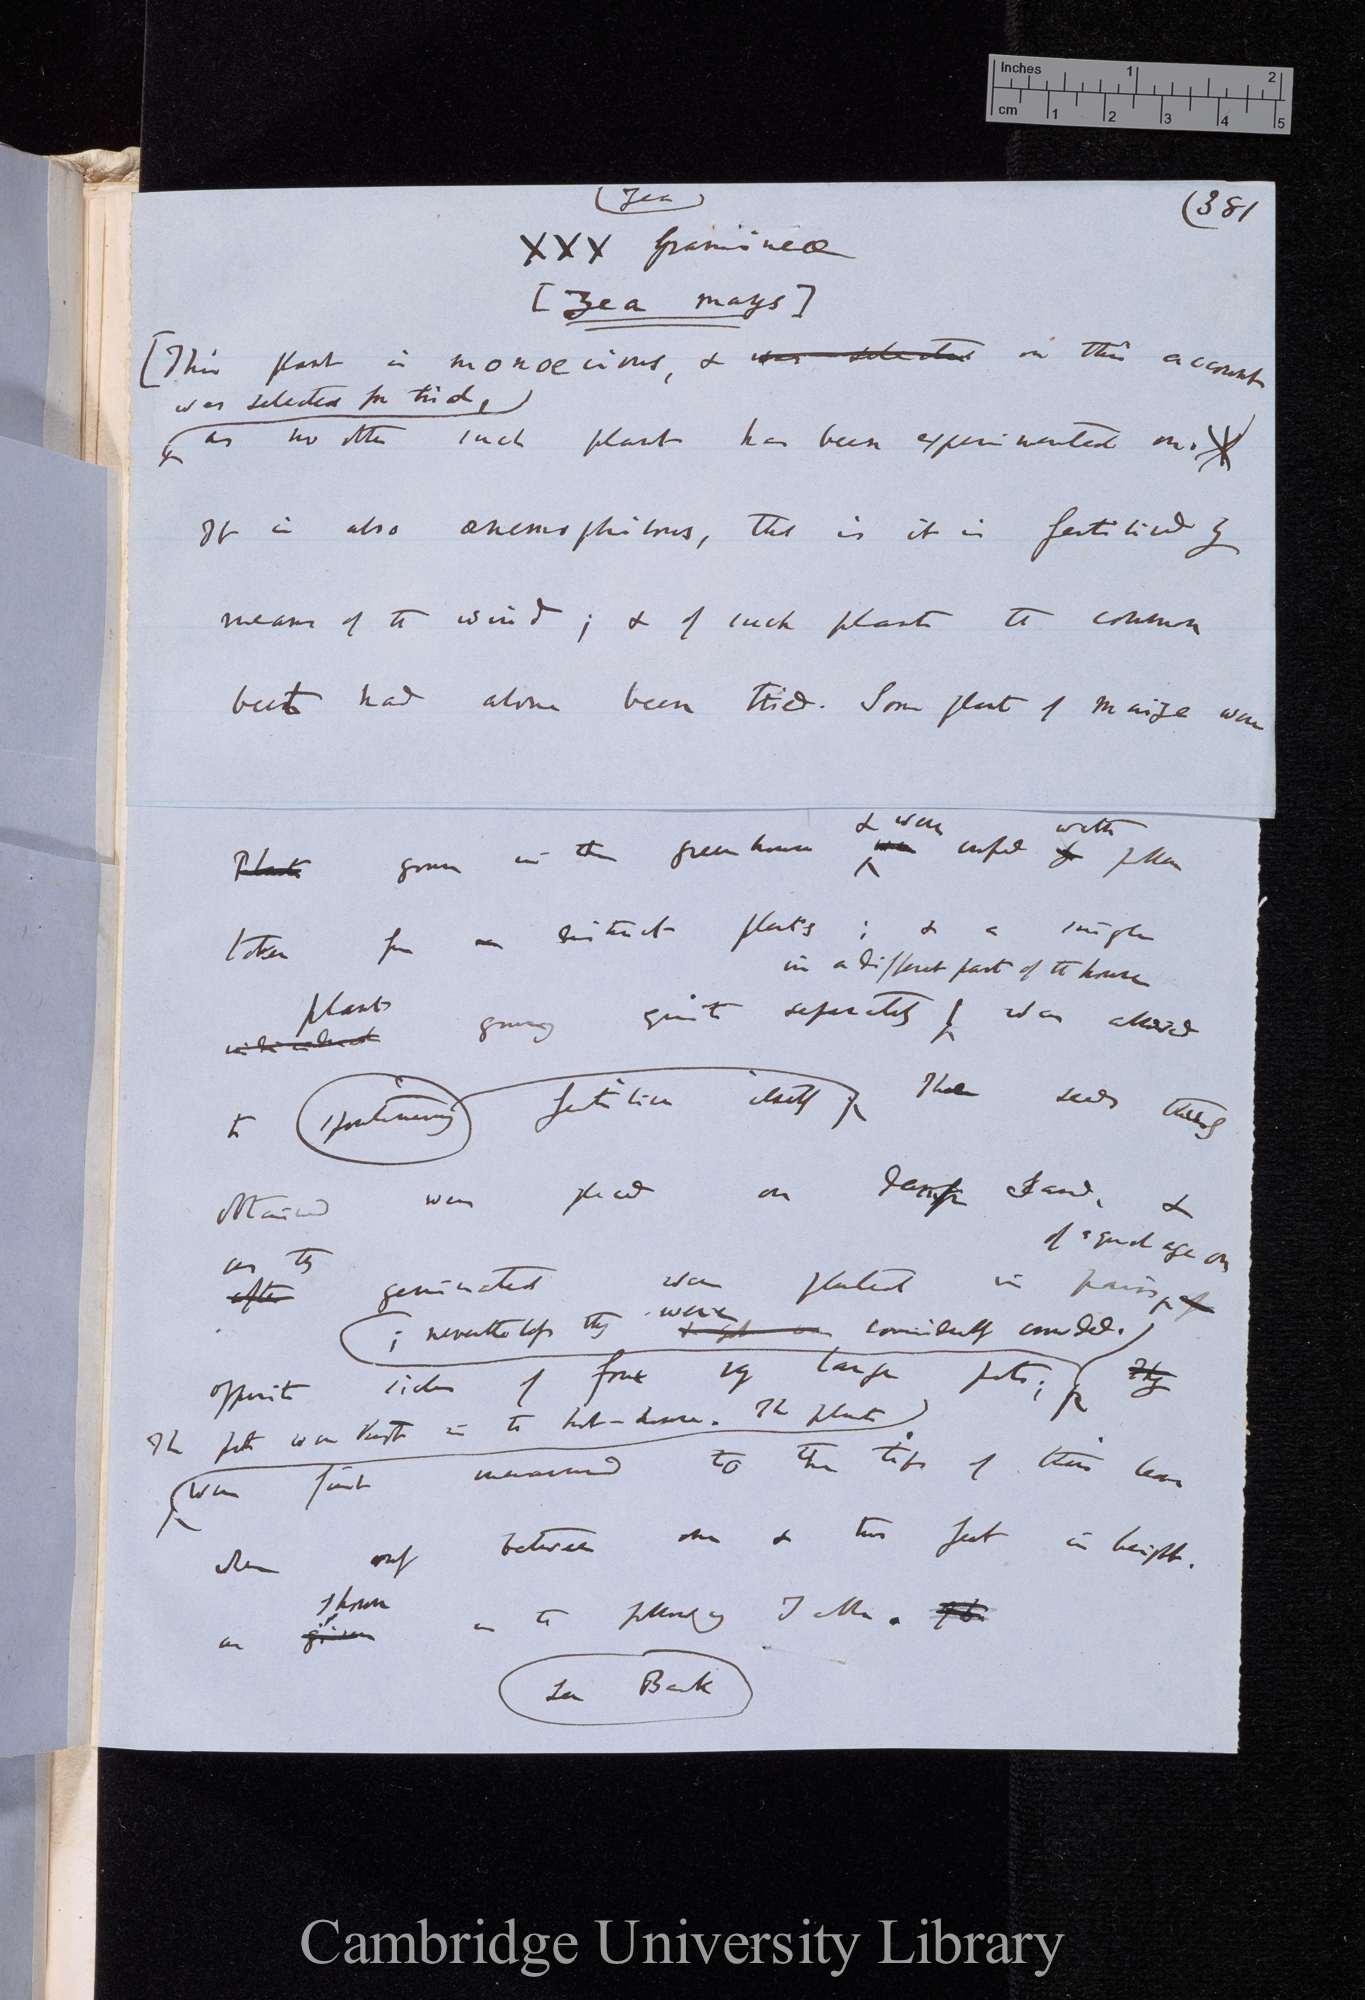 Inches 1 2
cm 1 2 3 4 5
(Zea)
(381
XXX Gramineæ
[Zea mays]
[This plant is monoecious, & was selected on this account
was selected for trial,
as no other such plant has been experimented on.
It is also anemophilous, that is it is fertilised by
means of the wind; & of such plants the common
beet had alone been tried. Some plants of maize were
& were with
Plants grown in the greenhouse were crossed by pollen
taken from a distinct plants; & a single
in a different part of the house
plant
individual growing quite separately was allowed
to spontaneously fertilise itself. The seeds thus
obtained were placed on damp sand, &
of equal age on
as they
after germinated were planted in pairs,
; nevertheless they were considerably crowded.
opposite sides of four very large pots; they
The pots were kept in the hot-house. The plants
were first measured to the tips of their leaves
when only between one & two feet in height.
shown
as given in the following Table.
See Back
Cambridge University Library